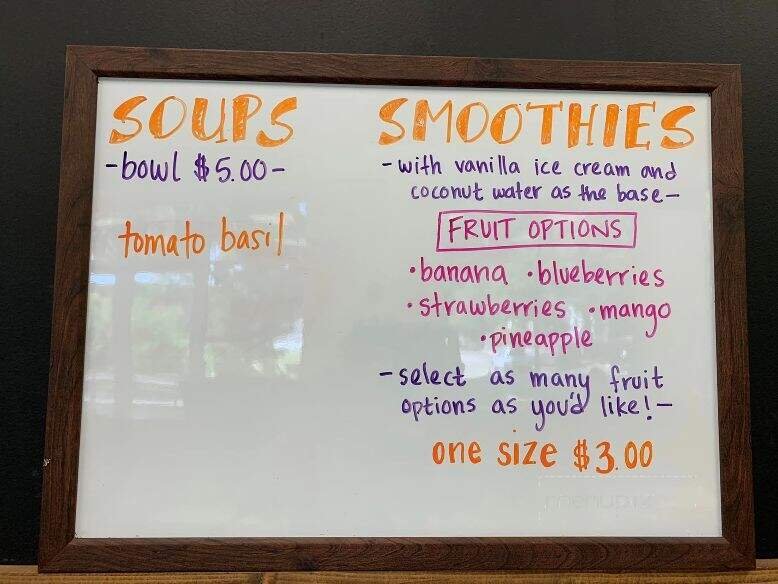 SOUPS
-bowl $5.00-
tomato basil
SMOOTHIES
-with vanilla ice cream and
coconut water as the base-
FRUIT OPTIONS
•banana •blueberries
•strawberries •mango
•pineapple
-select as many fruit
options as you'd like!-
one size $3.00